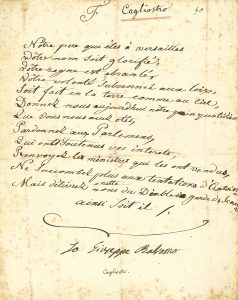 F. Cagliostro 51
Nôtre père qui êtes à versailles
Vôtre nom soit glorifié;
Vôtre regne est ébranlé;
Vôtre volonté
Soit fait en la terre comme au ciel,
Donnez nous aujourd'hui nôtre pain quotidien
Que vous nous avez otés,
Pardonnez aux Parlemens,
Qui ont soutenus vos interets,
Renvoyez les ministres qui les ont vendus,
Ne succombez plus aux tentations d'
Mais delivrez nous du Diable
ainsi soit il !
Io Giuseppe Balsamo
Cagliostro.